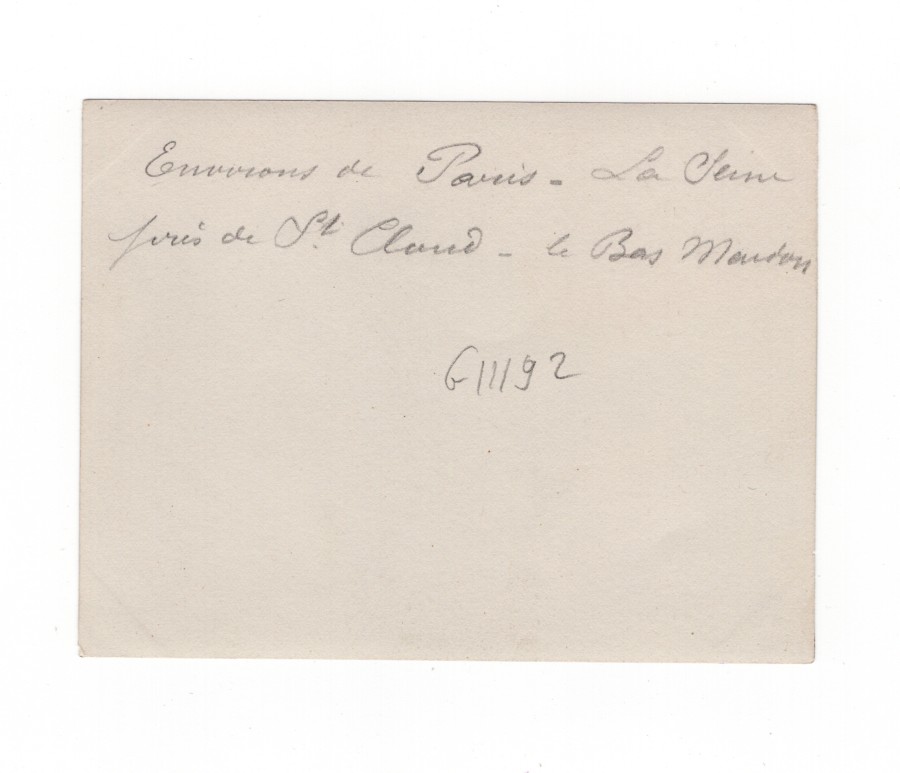 Environs de Paris - La Seine
près de St. Cloud - le Bas Meudon
G11192